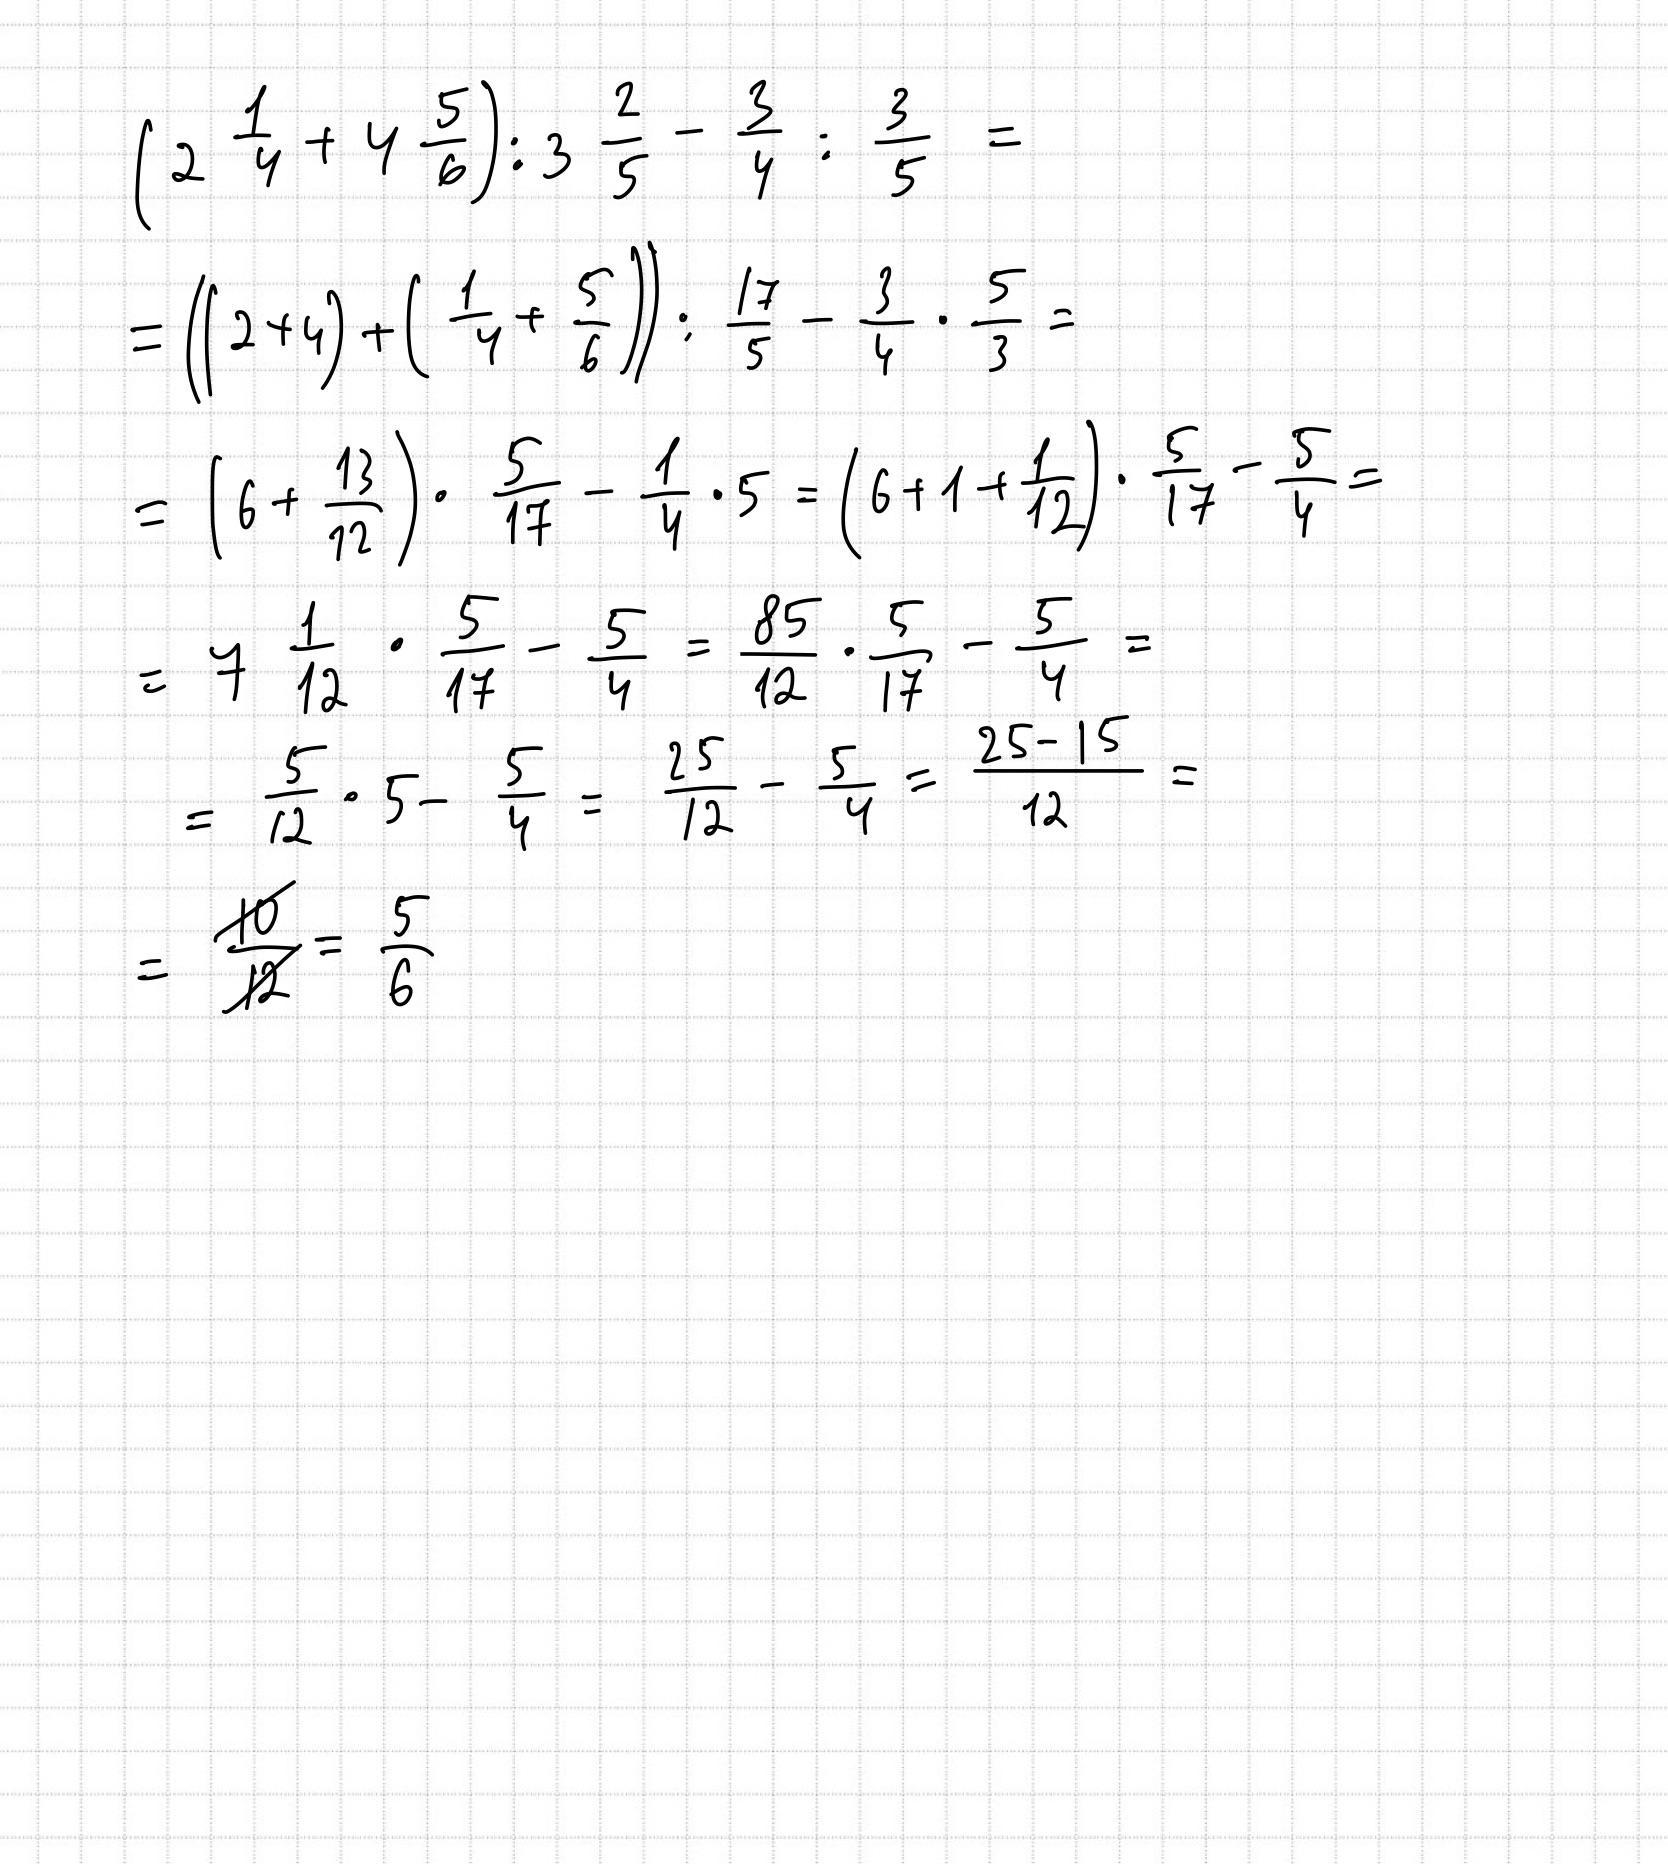 (2 1/4 + 4 5/6) : 3 2/5 - 3/4 : 3/5 =
= ((2+4) + (1/4 + 5/6)) : 17/5 - 3/4 · 5/3 =
= (6 + 13/12) · 5/17 - 1/4 · 5 = (6 + 1 + 1/12) · 5/17 - 5/4 =
= 7 1/12 · 5/17 - 5/4 = 85/12 · 5/17 - 5/4 =
= 5/12 · 5 - 5/4 = 25/12 - 5/4 = (25-15)/12 =
= 10/12 = 5/6